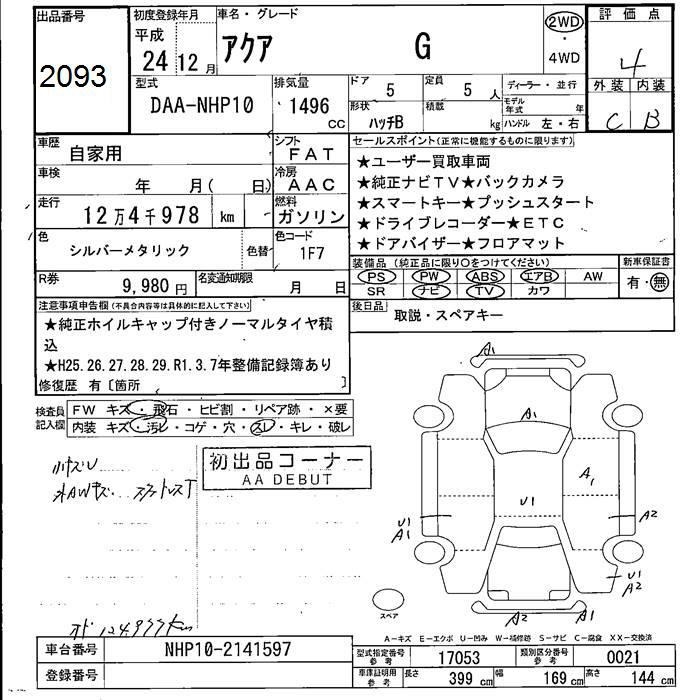 出品番号
2093
初度登録年月
平成
24年12月
車名・グレード
アクア G
2WD
・
4WD
評価点
4
外装 内装
C B
型式
DAA-NHP10
排気量
1496
CC
ドア 5
定員 5人
ディーラー・並行
形状 ハッチB
積載 kg
モデル年式 年
ハンドル 左・右
車歴 自家用
シフト FAT
車検 年 月( 日)
冷房 AAC
走行 12万4千978 km
燃料 ガソリン
色 シルバーメタリック 色替
色コード 1F7
R券 9,980円
名変通知期限 月 日
セールスポイント(正常に機能するものに限ります)
★ユーザー買取車両
★純正ナビTV★バックカメラ
★スマートキー★プッシュスタート
★ドライブレコーダー★ETC
★ドアバイザー★フロアマット
装備品(純正品に限り○をつけてください)
PS PW ABS エアB AW
SR ナビ TV カワ
新車保証書
有・無
後日品
取説・スペアキー
注意事項申告欄(不具合内容等は具体的に記入して下さい)
★純正ホイルキャップ付きノーマルタイヤ積
込
★H25.26.27.28.29.R1.3.7年整備記録簿あり
修復歴 有〔箇所 〕
検査員
記入欄
FW キズ・飛石・ヒビ割・リペア跡・×要
内装 キズ・汚レ・コゲ・穴・スレ・キレ・破レ
初出品コーナー
AA DEBUT
小キズU
オド 124,977km
A1
A1
A1
U1
U1
A1
A2
U1
A2
A2
A1
スペア
A-キズ E-エクボ U-凹み W-補修跡 S-サビ C-腐食 XX-交換済
車台番号 NHP10-2141597
登録番号
型式指定番号
参考
17053
類別区分番号
参考
0021
車庫証明用
参考
長さ 399 cm
幅 169 cm
高さ 144 cm